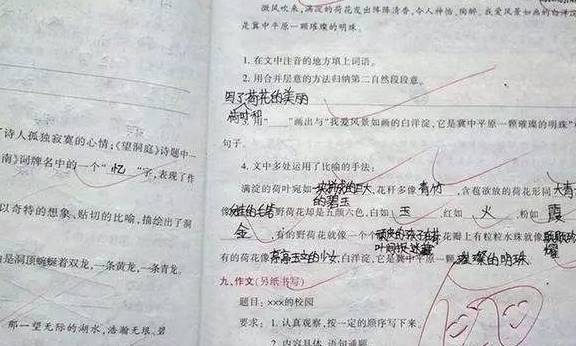 诗人孤独寂寞的心情;《望洞庭》诗题中
南》词牌名中的一个“忆”字,表现了作
以奇特的想象、贴切的比喻,描绘出了洞
是洞顶蜿蜒着双龙,一条黄龙,一条青龙。
那一望无际的湖水,浩瀚无垠、碧
微风吹来,满淀的荷花发出阵阵清香,令人神怡、陶醉。我爱风景如画的白洋淀
是冀中平原一颗璀璨的明珠。
1. 在文中注音的地方填上词语。
2. 用合并层意的方法归纳第二自然段段意。
写了荷花的美丽
荷叶
用“ ”画出与“我爱风景如画的白洋淀,它是冀中平原一颗璀璨的明珠”
句子。
4. 文中多处运用了比喻的手法:
满淀的荷叶宛如 巨大的碧玉 ,花杆多像 青竹 ,含苞欲放的荷花形同 大青
像 野荷花却是五颜六色,白如 玉 红如 火 粉如 霞
金 ,有的野荷花就像一个个 花瓣上有粒粒水珠就像
有的荷花像 的少女 白洋淀,它是冀中平原一颗 璀璨的明珠
九、作文(另纸书写)
题目:×××的校园
要求:1. 认真观察,按一定的顺序写下来。
2. 内容具体,语句通顺